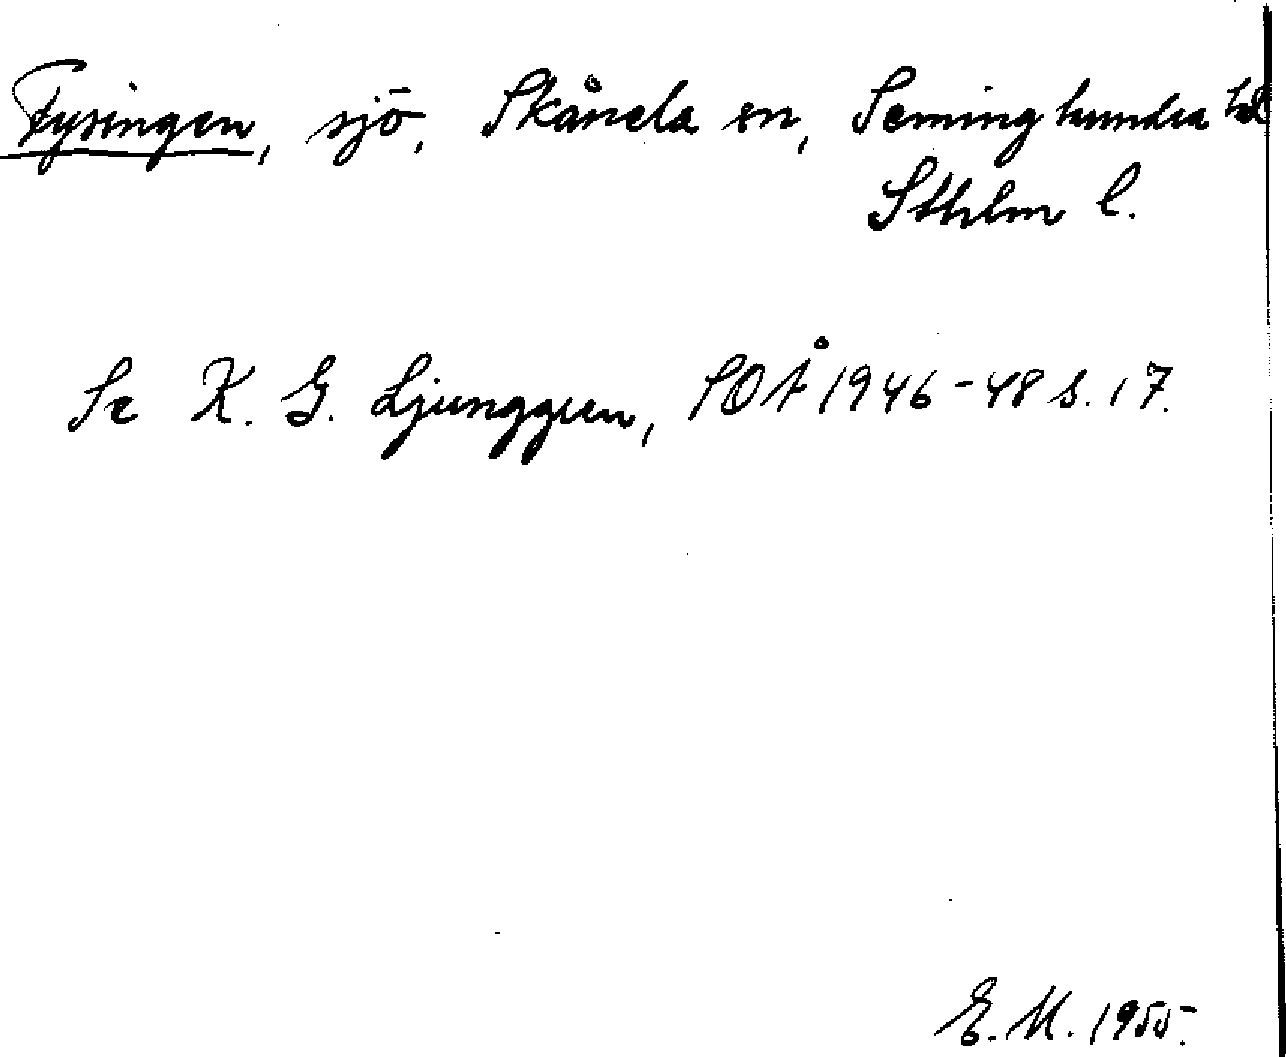 Fysingen, sjö, Skånela sn, Seminghundra hd
Sthlm l.
Se K. G. Ljunggren, SOÅ 1946-48 s. 17.
E. M. 1955.